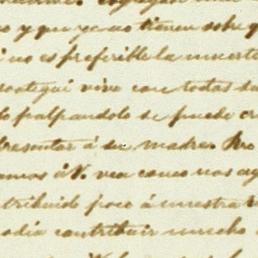 o y que ya no tienen sobre q
i no es preferible la muerte
oategui vive con todas su
lo palpandolo se puede cr
presentar á su madre. No
omos á V. vea como nos ag
ntribuido poco á nuestra
odia contribuir mucho